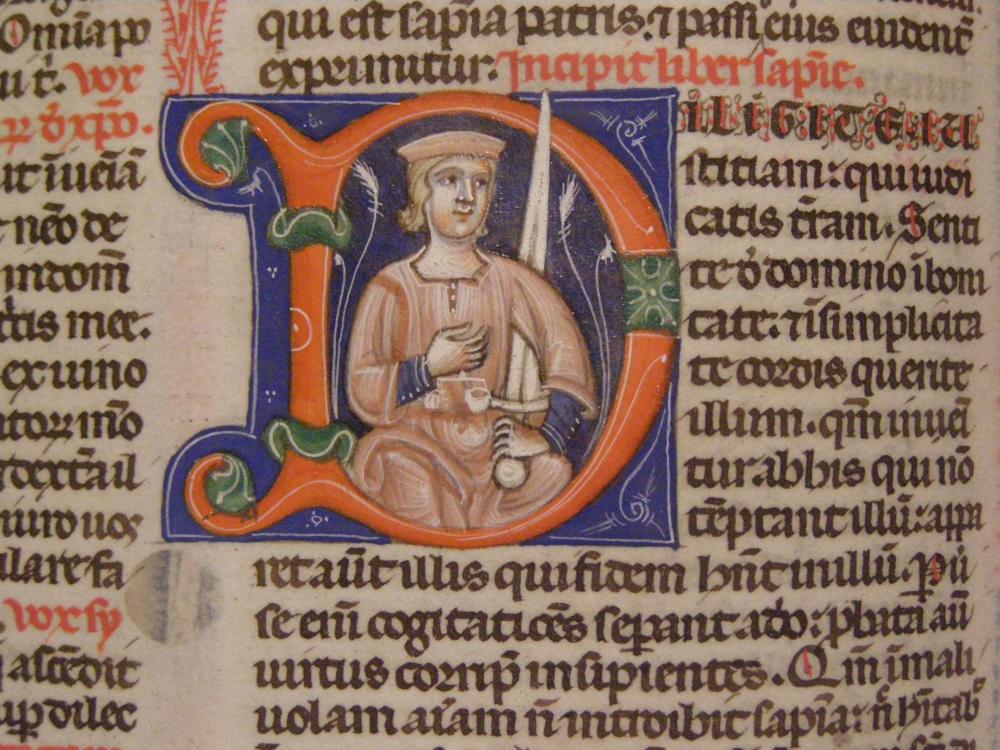 Om̄ia po
ut̄. vox
d̄ xp̄o.
ut iueīā
neō de
indom̄
mee.
ex uino
mō
dext̄a il
iuro uoꝫ
lare fa
vox sy
ascēdit
dilec
qui est sapīa patris. ⁊ passī eius euidenť
exprimitur. Incipit liber sapīe.
DILIGITE IU
stitiam: qui iudi
catis t̄ram. Senti
te ð domino ī boni
tate. ⁊ ī simplicita
te cordis querite
illum. qm̄ inueī
tur ab his qui nō
tēptant illū: appa
ret aūt illis qui fidem hn̄t in illū. Pū
se enī cogitatiōēs sepant a dō: ꝓbata aū
uirtus corrip̄ insipientes. Qm̄ in mali
uolam aīam n̄ introibit sapīa: n̄ hītab̄